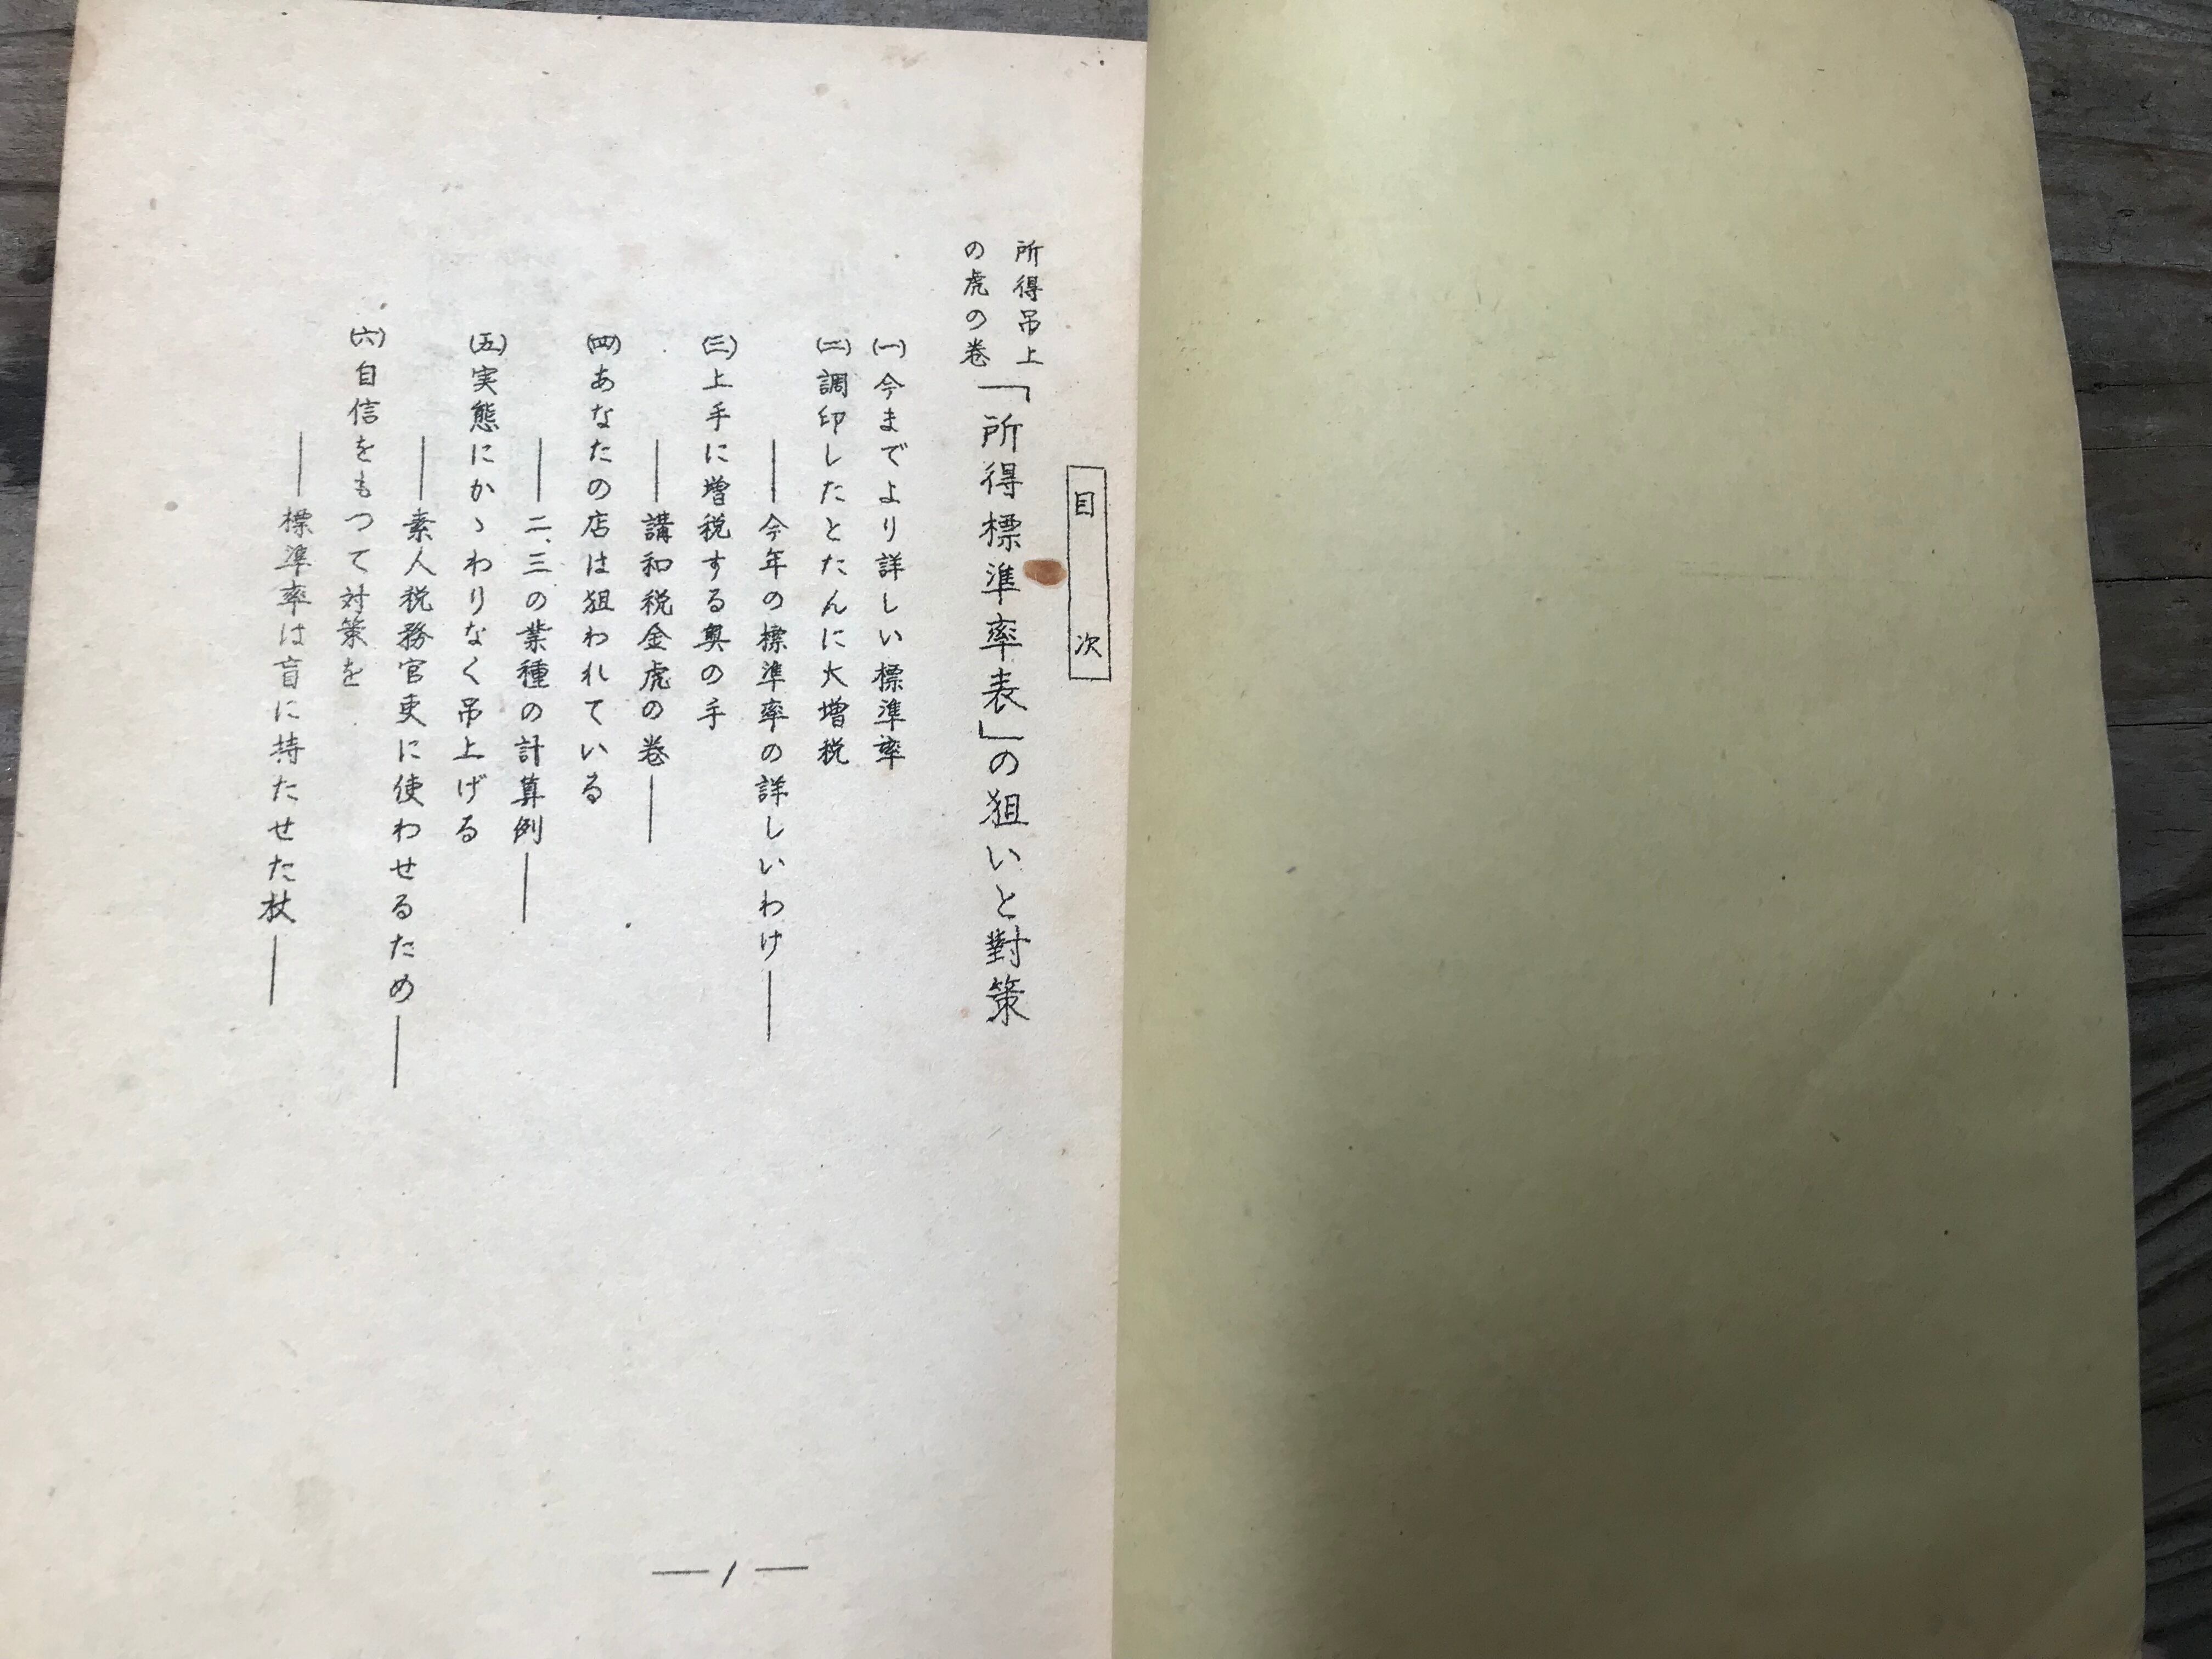 目次
所得吊上
の虎の巻
「所得標準率表」の狙いと對策
(一)今までより詳しい標準率
(二)調印したとたんに大増税
――今年の標準率の詳しいわけ――
(三)上手に増税する奥の手
――講和税金虎の巻――
(四)あなたの店は狙われている
――二、三の業種の計算例――
(五)実態にかゝわりなく吊上げる
――素人税務官吏に使わせるため――
(六)自信をもつて対策を
――標準率は盲に持たせた杖――
―1―